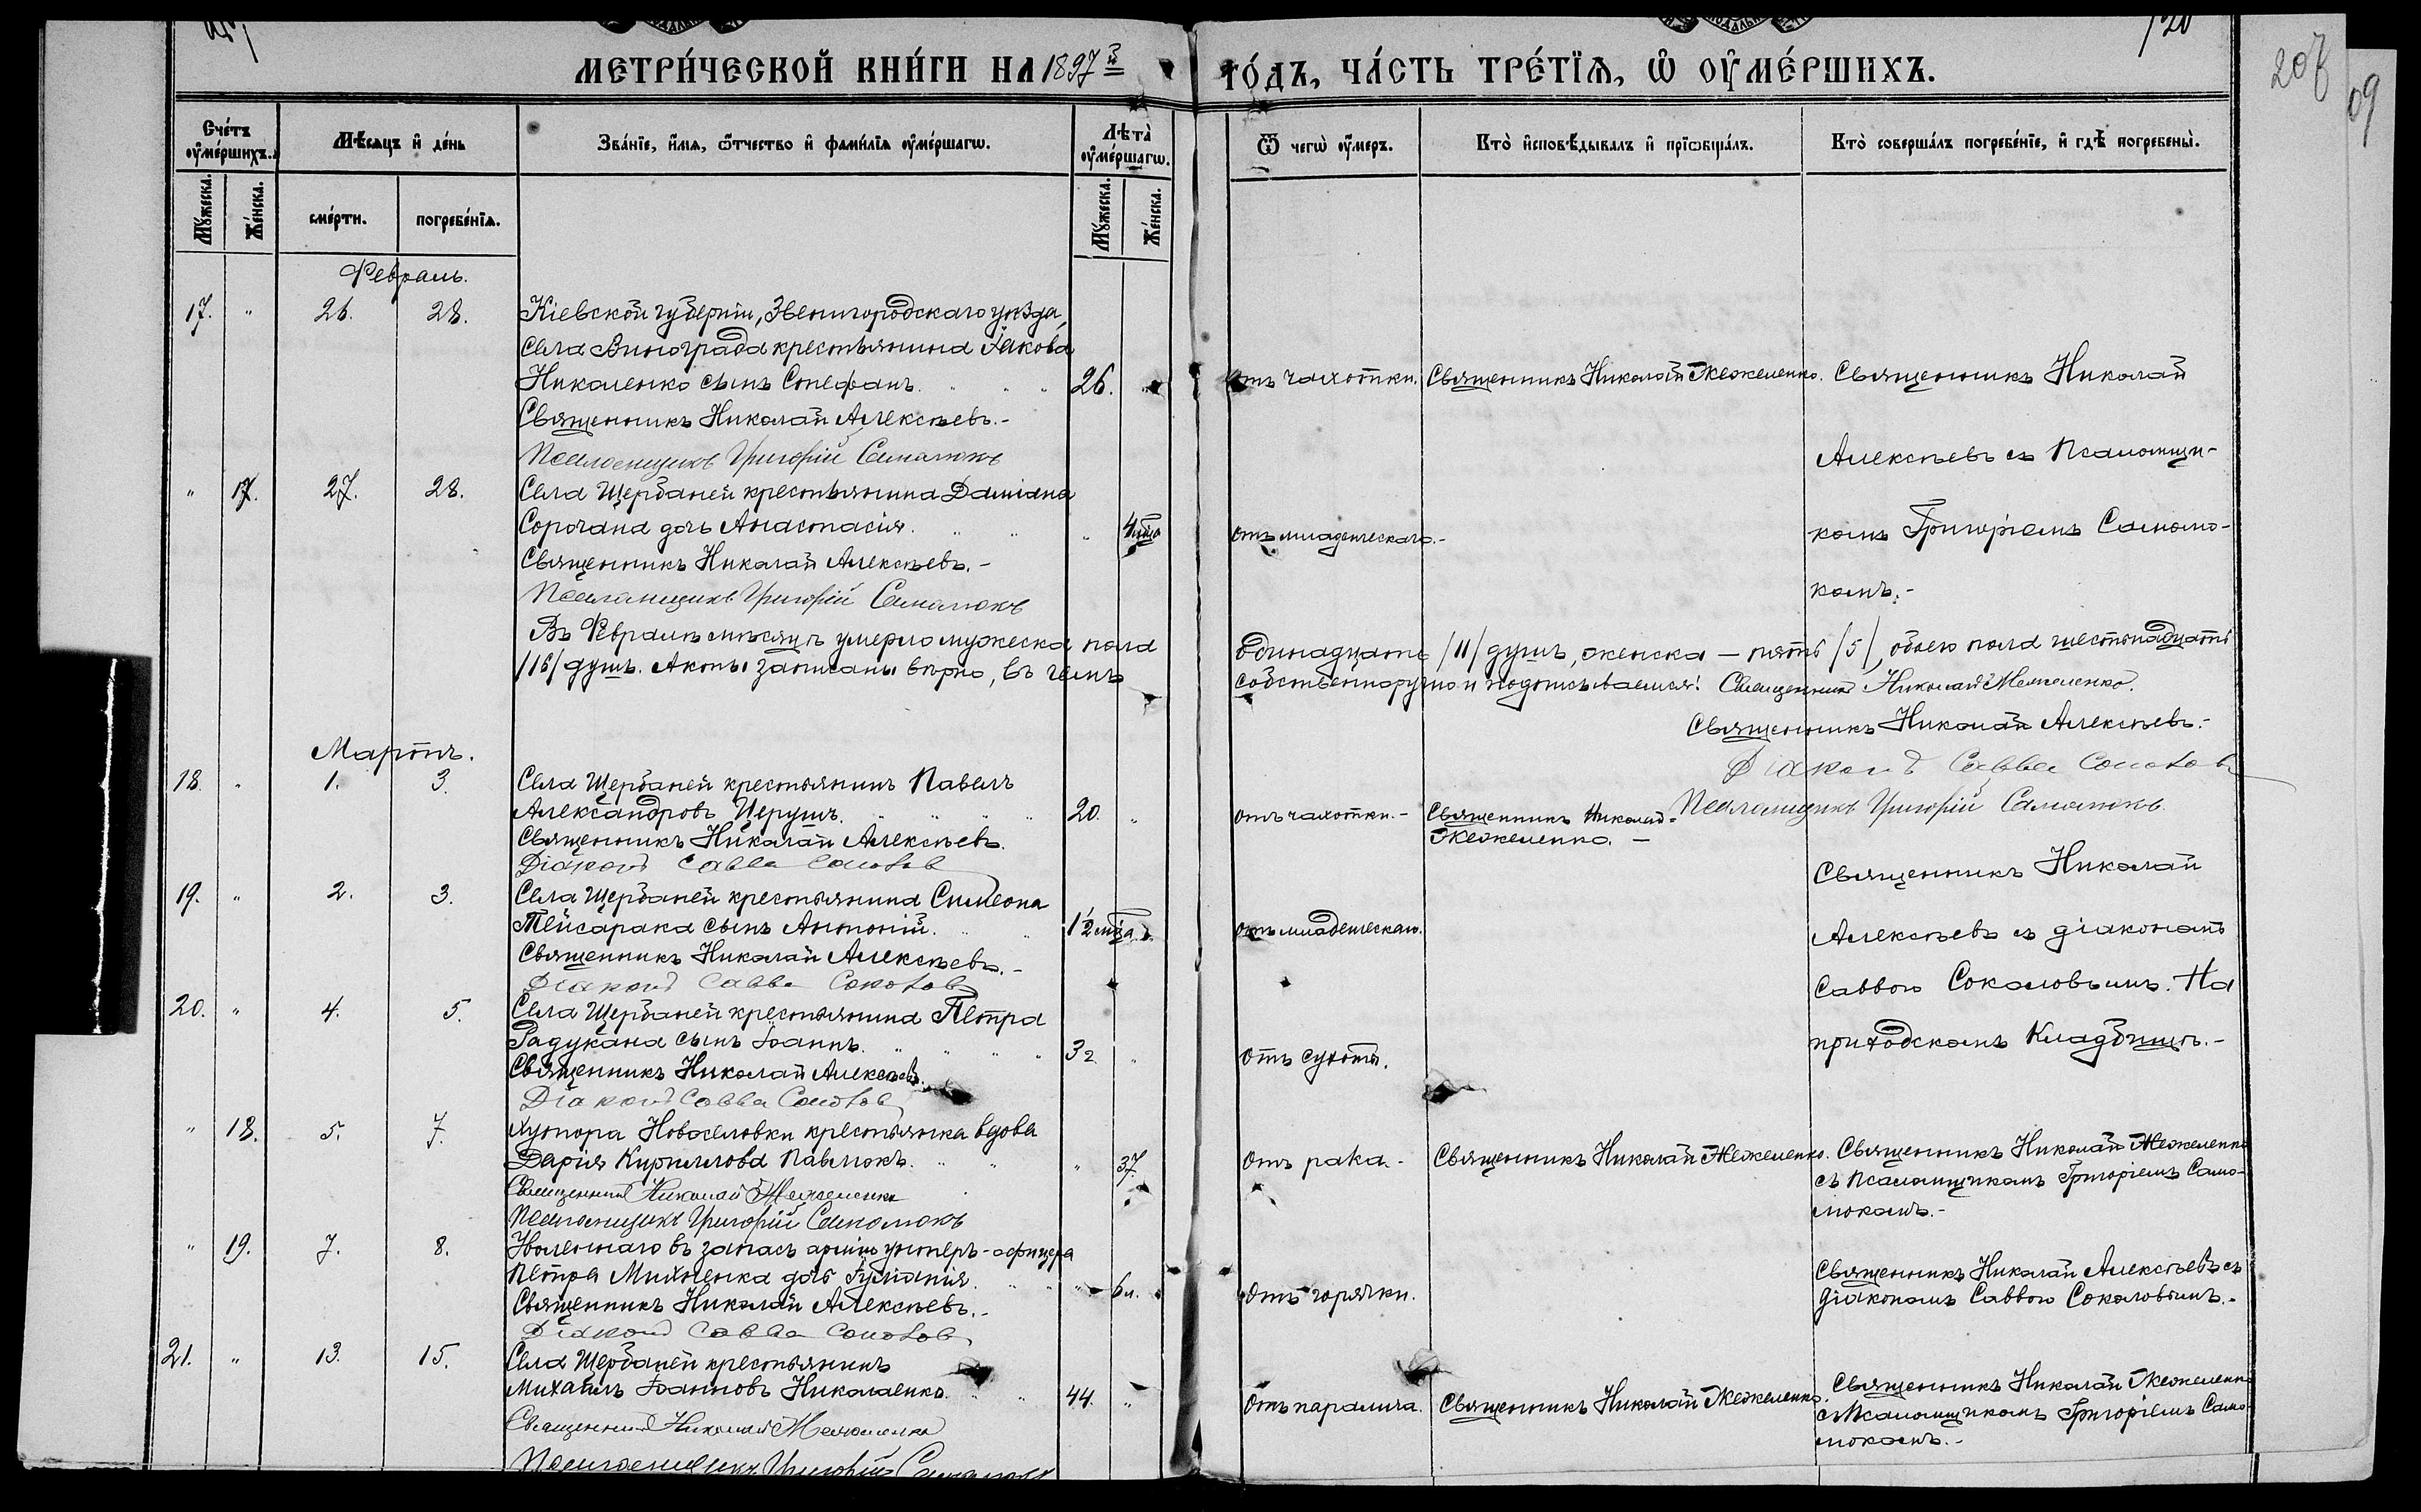 120
207
09
МЕТРИ́ЧЕСКОЙ КНИ́ГИ НА 1897й ГО́ДЪ, ЧА́СТЬ ТРЕ́ТЇѦ, Ѽ ОУ҆МЕ́РШИХЪ.
Сче́тъ оу҆ме́ршихъ.
Мѣ́сяцъ и҆ де́нь
Зва́нїе, и҆́мѧ, ѻ҆́тчество и҆ фами́лїѧ оу҆ме́ршагѡ.
Лѣ́та оу҆ме́ршагѡ.
Ѿ чегѡ̀ оу҆́меръ.
Кто̀ и҆сповѣ́дывалъ и҆ прїѡбща́лъ.
Кто̀ соверша́лъ погребе́нїе, и҆ гдѣ̀ погребены̀.
Мꙋ́жеска.
Же́нска.
сме́рти.
погребе́нїѧ.
Мꙋ́жеска.
Же́нска.
Февраль.
17. " 26. 28. Кіевской губерніи, Звенигородскаго уѣзда,
села Винограда крестьянина Іакова
Николенко сынъ Стефанъ. 26. " Отъ чахотки. Священникъ Николай Жежеленко. Священникъ Николай
Священникъ Николай Алексѣевъ.-
Псаломщикъ Григорій Самолюкъ
Алексѣевъ съ Псаломщи-
" 17. 27. 28. Села Щербаней крестьянина Даміана
Сорочана дочь Анастасія. " 4 мѣс. отъ младенческаго.-
комъ Григоріемъ Самолю-
Священникъ Николай Алексѣевъ.-
комъ.-
Псаломщикъ Григорій Самолюкъ
Въ Февралѣ мѣсяцѣ умерло мужеска пола одинадцать /11/ душъ, женска — пять /5/, обоего пола шестьнадцать
/16/ душъ. Акты записаны вѣрно, въ чемъ собственоручно и подписываемся: Священникъ Николай Жежеленко.
Священникъ Николай Алексѣевъ.-
Діаконъ Савва Соколовъ
Псаломщикъ Григорій Самолюкъ.
Мартъ.
18. " 1. 3. Села Щербаней крестьянинъ Павелъ
Александровъ Церушъ. 20. " отъ чахотки.- Священникъ Николай
Жежеленко. —
Священникъ Николай Алексѣевъ.
Діаконъ Савва Соколовъ
Священникъ Николай
19. " 2. 3. Села Щербаней крестьянина Симеона
Тейсарака сынъ Антоній. 1½ мѣс. " отъ младенческаго.
Алексѣевъ съ діакономъ
Священникъ Николай Алексѣевъ.-
Діаконъ Савва Соколовъ
Саввою Соколовымъ. На
20. " 4. 5. Села Щербаней крестьянина Петра
Радукана сынъ Іоаннъ. " отъ сухотъ.
приходскомъ Кладбищѣ.-
Священникъ Николай Алексѣевъ.
Діаконъ Савва Соколовъ
" 18. 5. 7. Хутора Новоселовки крестьянка вдова
Дарія Кириллова Павлюкъ. " 37. отъ рака.- Священникъ Николай Жежеленко. Священникъ Николай Жежеленко
съ Псаломщикомъ Григоріемъ Само-
люкомъ.-
Священникъ Николай Жежеленко
Псаломщикъ Григорій Самолюкъ
" 19. 7. 8. Уволеннаго въ запасъ арміи унтеръ-офицера
Петра Михненка дочь Іуліанія. " 6 л. Отъ горячки.
Священникъ Николай Алексѣевъ съ
діакономъ Саввою Соколовымъ.-
Священникъ Николай Алексѣевъ.-
Діаконъ Савва Соколовъ
21. " 13. 15. Села Щербаней крестьянинъ
Михаилъ Іоанновъ Николаенко. 44. " Отъ паралича. Священникъ Николай Жежеленко. Священникъ Николай Жежеленко
съ Псаломщикомъ Григоріемъ Само-
люкомъ.-
Священникъ Николай Жежеленко
Псаломщикъ Григорій Самолюкъ